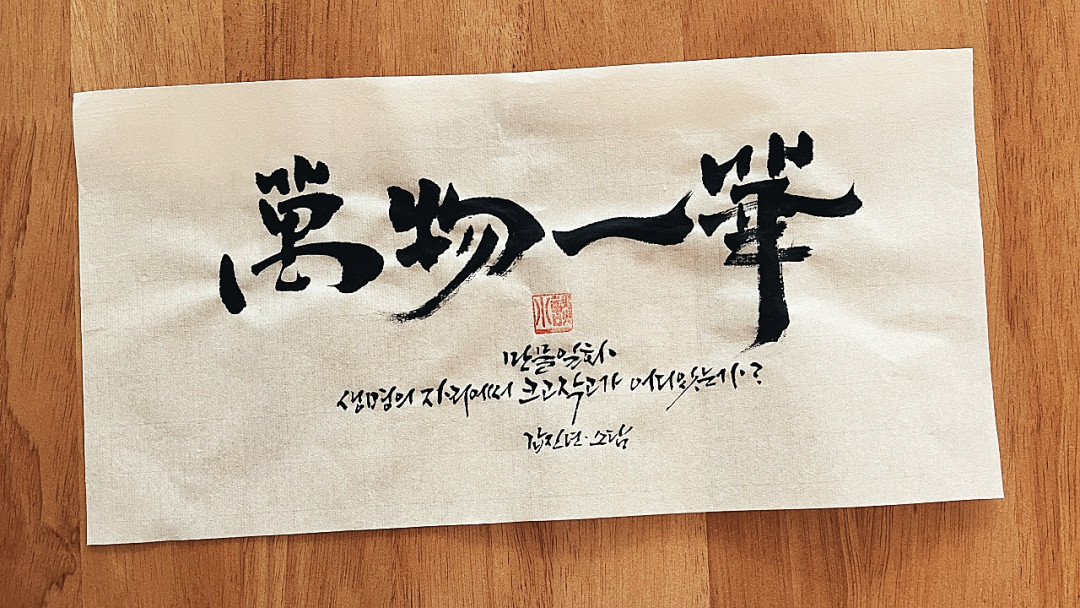 萬物一華
만물일화
생명의 자리에서 크고작고가 어디있는가?
갑진년·소담